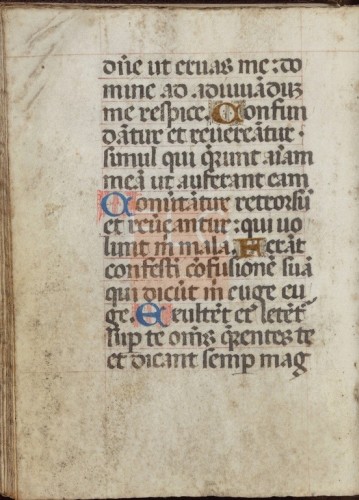 dn̄e ut eruas me : do
mine ad adiuuādū₃
me respice. Confun
dātur et reuereātur ·
simul qui q̄runt aīam
meā ut auferant eam
Conūtātur retrorsū
et reuēantur : qui uo
lunt m̄ mala. Ferāt
confestī cōfusionē suā
qui dicūt m̄ euge eu
ge. Exultēt et letēt᷑
sup te om̄s q̄rentes te
et dicant semp mag